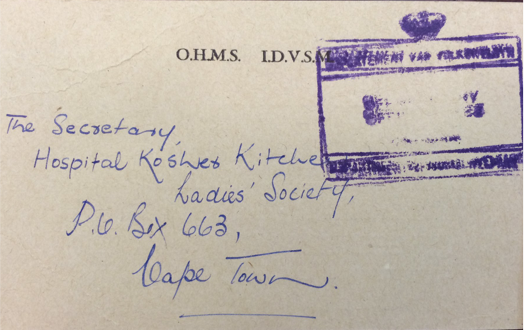 O.H.M.S. I.D.V.S.M.
DEPARTEMENT VAN VOLKSWELSYN
The Secretary,
Hospital Kosher Kitchen
Ladies' Society,
P.O. Box 663,
Cape Town.